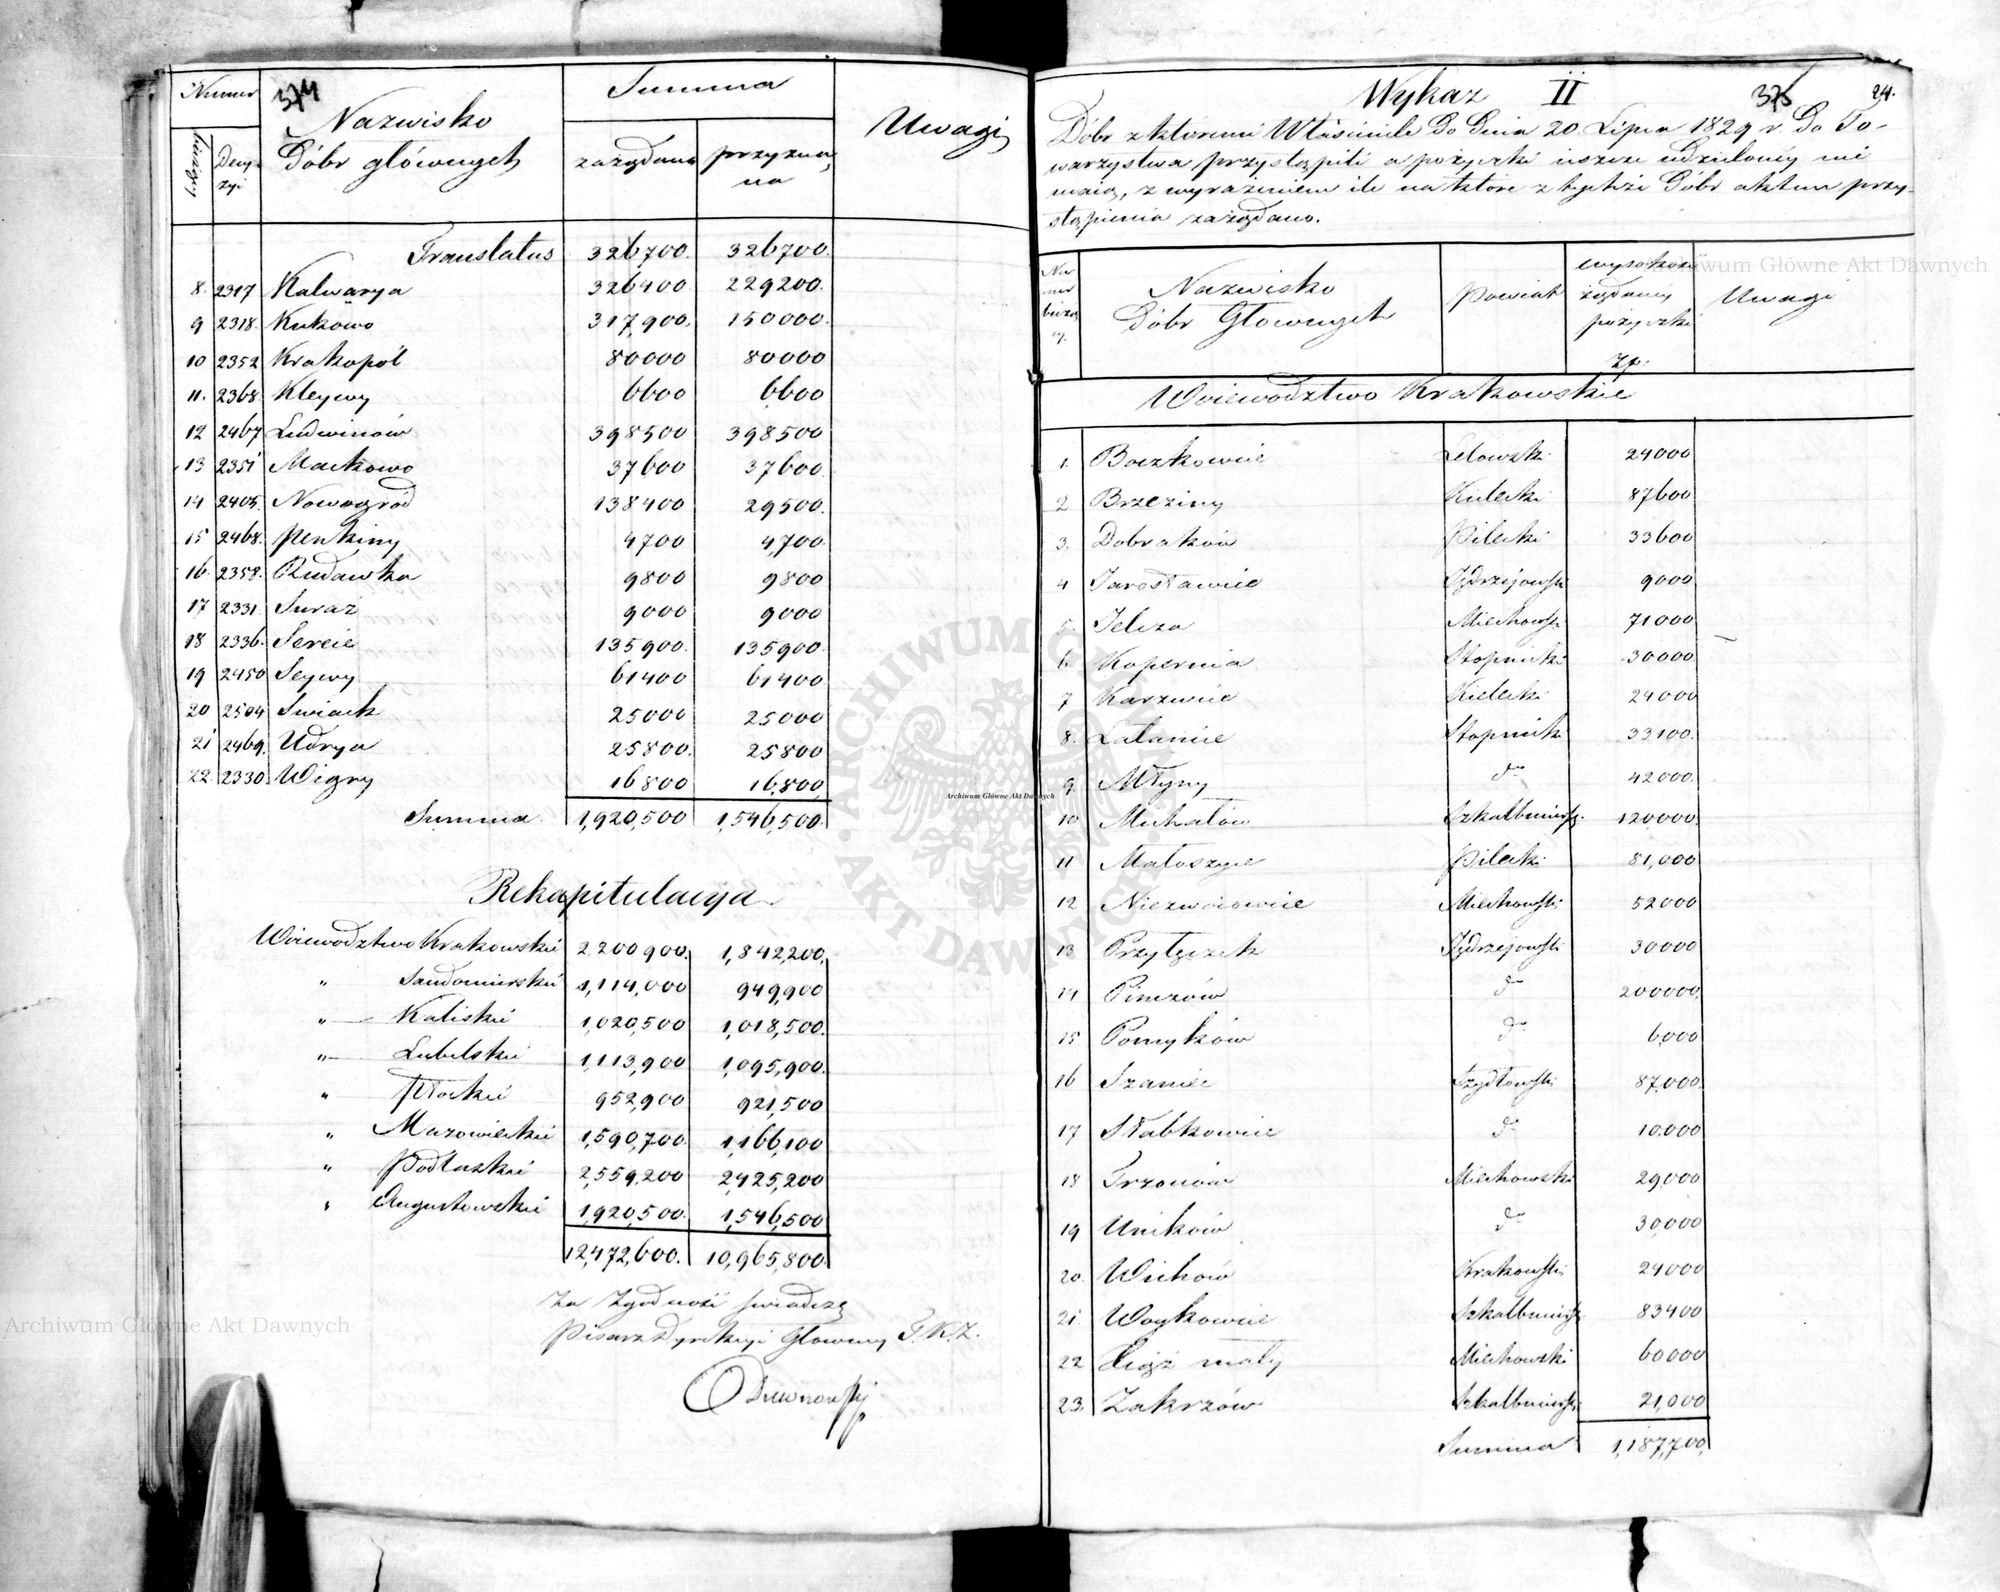 Numer
374
Nazwisko
Dóbr głównych
Summa
Uwagi
bieżący
Decyzyi
zażądana
przyznana
Translatus 326700. 326700.
8. 2317 Kalwarya 326400. 229200.
9 2318. Kukowo 317,900. 150000.
10 2352 Krakopól 80000 80000
11. 2368. Kleywy 6600 6600
12 2467 Ludwinów 398500 398500
13 2351 Maćkowo 37600 37600
14 2405. Nowogród 138400 29500.
15 2468. Penkiny 4700 4,700.
16. 2358. Rudawka 9800 9800
17 2331 Suraż 9000 9000
18 2336. Sereie 135900. 135900.
19 2450 Seywy 61400 61400
20 2504 Swiack 25000 25000
21 2469. Udrya 25800. 25800
22. 2330. Wigry 16800 16,800
Summa 1,920,500 1,546,500.
Rekapitulacya
Woiewodztwo Krakowskie 2,200 900. 1,842,200.
" Sandomirskie 1,114,000 949,900
" Kaliskie 1,020,500 1,018,500.
" Lubelskie 1,113,900 1,095,900.
" Płockie 952,900 921,500
" Mazowieckie 1,590,700. 1,166,100
" Podlaskie 2,559,200 2,425,200
" Augustowskie 1,920,500. 1,546,500
12,472,600. 10,965,800
Za Zgodność świadczę
Pisarz Dyrekcyi Główney T.K.Z.
Wykaz II 375 24.
Dóbr z któremi Właściciele do dnia 20. Lipca 1829 r. do To-
warzystwa przystąpili a pożyczki ieszcze udzieloney nie
maią, z wyrażeniem ile na które z tychże Dóbr aktem przy-
stąpienia zażądano.
Numer bieżący
Nazwisko
Dóbr Głownych
Powiat
wysokość
żądaney
pożyczki
zp.
Uwagi
Woiewodztwo Krakowskie
1. Boczkowice Lelowski 24000
2 Brzeziny Kielecki 87600
3. Dobraków Pilecki 33600
4 Jarosławice Jędrzejowski 9000
5. Jelcza Miechowski 71000
6. Kopernia Stopnicki 30000
7 Karzwice Kielecki 24000
8. Łatanice Stopnicki 33100.
9 Młyny do 42000.
10 Michałów Szkalbmirsk. 120,000.
11 Małoszyce Pilecki 81,000
12 Niezwoiowice Miechowski 52000
13 Przyłęczek Jędrzejowski 30000
14 Pinczów do 200000,
15 Pomyków do 6,000
16 Szaniec Szydłowski 87,000.
17 Słabkowice do 10,000
18 Trzonów Miechowski 29,000
19 Uników do 30,000
20. Wichów Krakowski 24000
21. Woykowice Szkalbmirsk. 83400
22 Xiąż mały Miechowski 60000
23. Zakrzów Szkalbmirsk. 21,000
Summa 1,187,700,
Archiwum Główne Akt Dawnych
Archiwum Główne Akt Dawnych
Archiwum Główne Akt Dawnych
ARCHIWUM GŁÓWNE AKT DAWNYCH